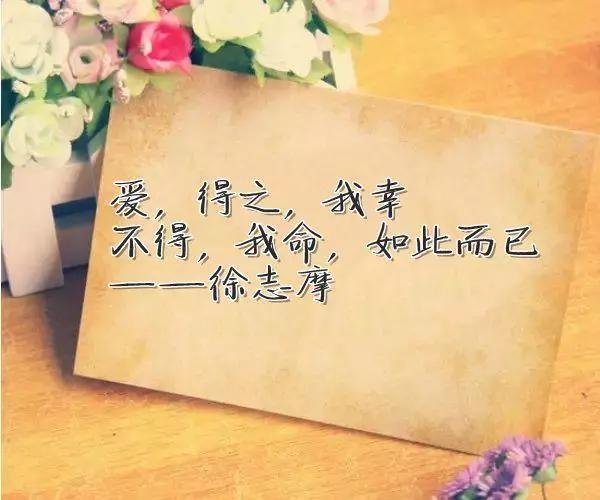 爱，得之，我幸
不得，我命，如此而已
——徐志摩